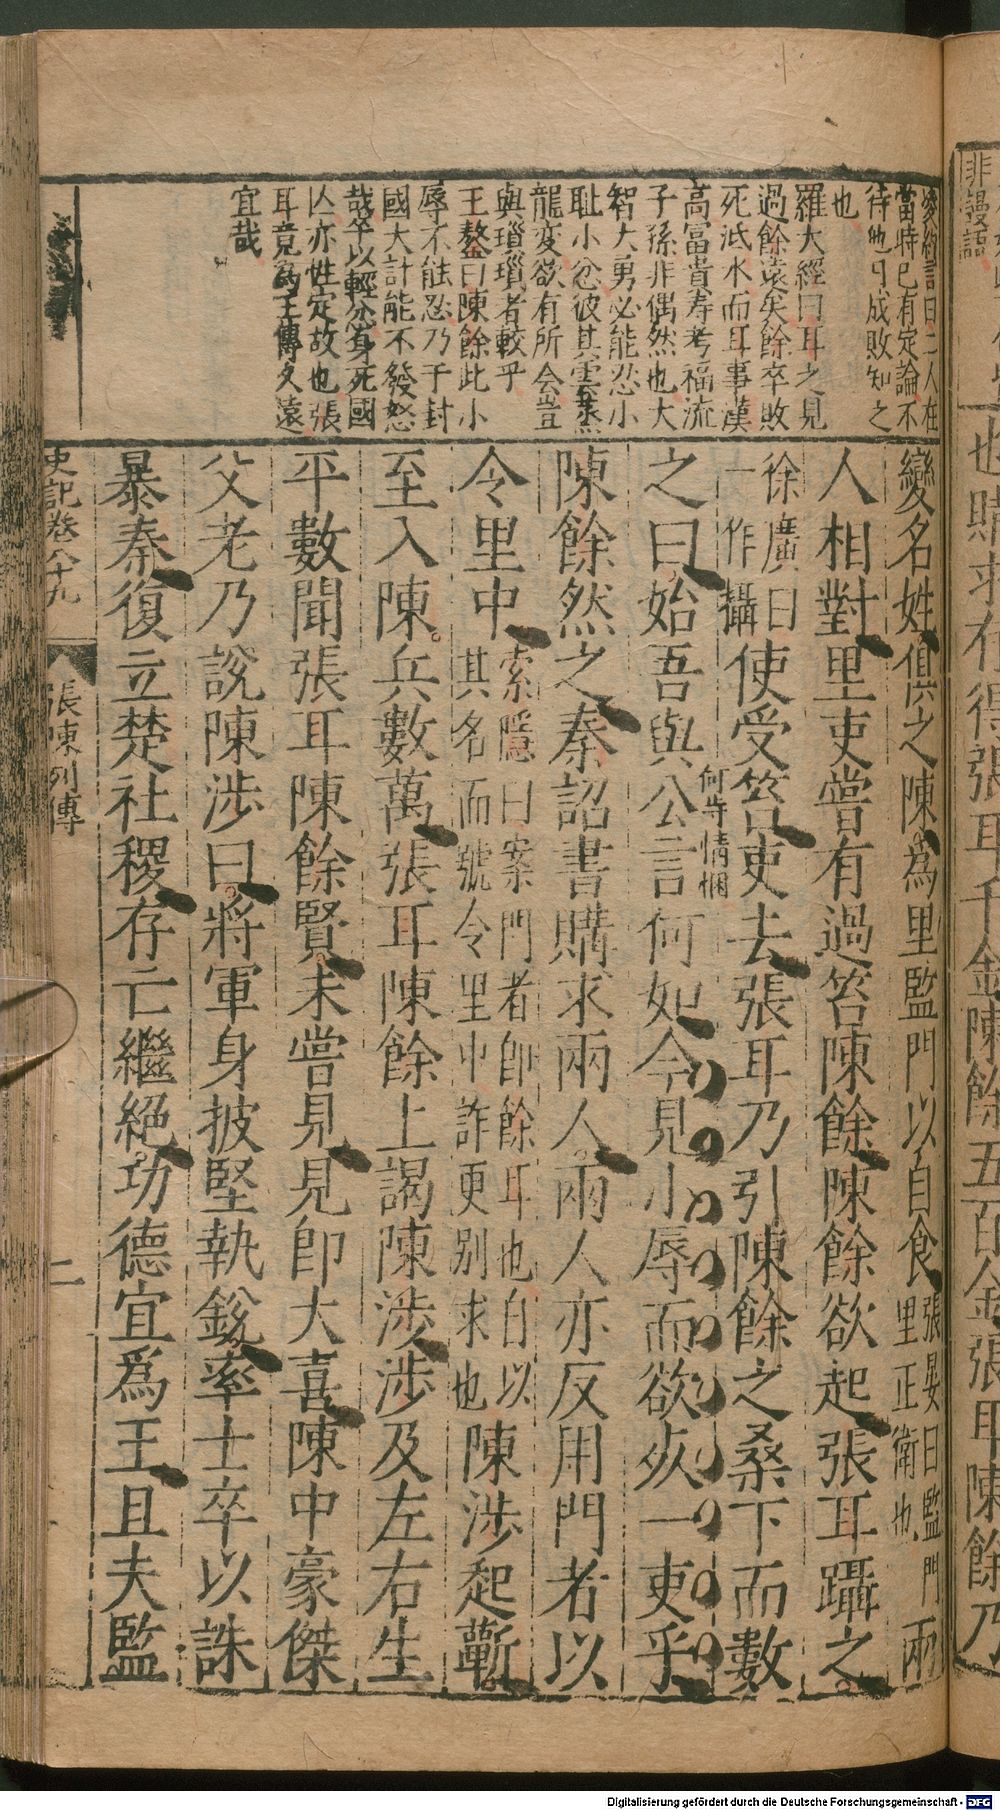 當時已有定論不
待他日成敗知之
也
羅大經曰耳之見
過餘遠矣餘卒敗
死泜水而耳事漢
高富貴壽考福流
子孫非偶然也大
智大勇必能忍小
耻小忿彼其雲蒸
龍變欲有所会豈
與瑣瑣者較乎
王鏊曰陳餘此小
辱不能忍乃于封
國大計能不發怒
哉卒以輕忿身死國
亾亦性定故也張
耳竟為王傳久遠
宜哉
變名姓俱之陳為里監門以自食張晏曰監門里正衛也兩
人相對里吏嘗有過笞陳餘陳餘欲起張耳躡之
徐廣曰一作攝使受笞吏去張耳乃引陳餘之桑下而數
之曰始吾與公言何如今見小辱而欲死一吏乎
陳餘然之秦詔書購求兩人兩人亦反用門者以
令里中索隱曰案門者即餘耳也自以其名而號令里中詐更别求也陳涉起蘄
至入陳兵數萬張耳陳餘上謁陳涉涉及左右生
平數聞張耳陳餘賢未嘗見見即大喜陳中豪傑
父老乃說陳涉曰將軍身披堅執銳率士卒以誅
暴秦復立楚社稷存亡繼絕功德宜爲王且夫監
史記卷八十九
張陳列傳
二
Digitalisierung gefördert durch die Deutsche Forschungsgemeinschaft - DFG